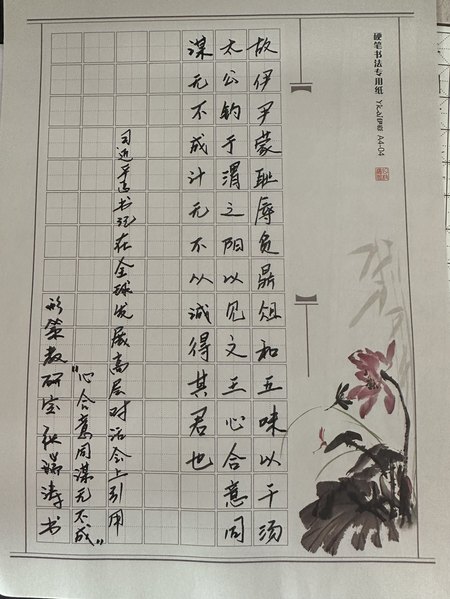 硬笔书法专用纸 A4-04
故伊尹蒙耻辱负鼎俎和五味以干汤
太公钓于渭之阳以见文王心合意同
谋无不成计无不从诚得其君也
习近平总书记在全球发展高层对话会上引用
“心合意同谋无不成”
形策教研室 瑞涛书